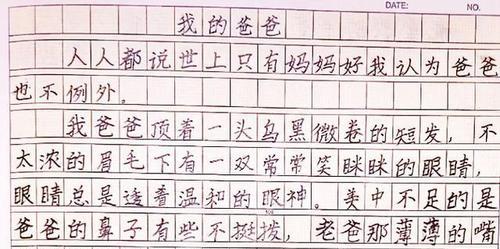 DATE: NO.
我的爸爸
人人都说世上只有妈妈好我认为爸爸
也不例外。
我爸爸顶着一头乌黑微卷的短发，不
太浓的眉毛下有一双常常笑眯眯的眼睛，
眼睛总是透着温和的眼神。美中不足的是
爸爸的鼻子有些不挺拨，老爸那薄薄的嘴